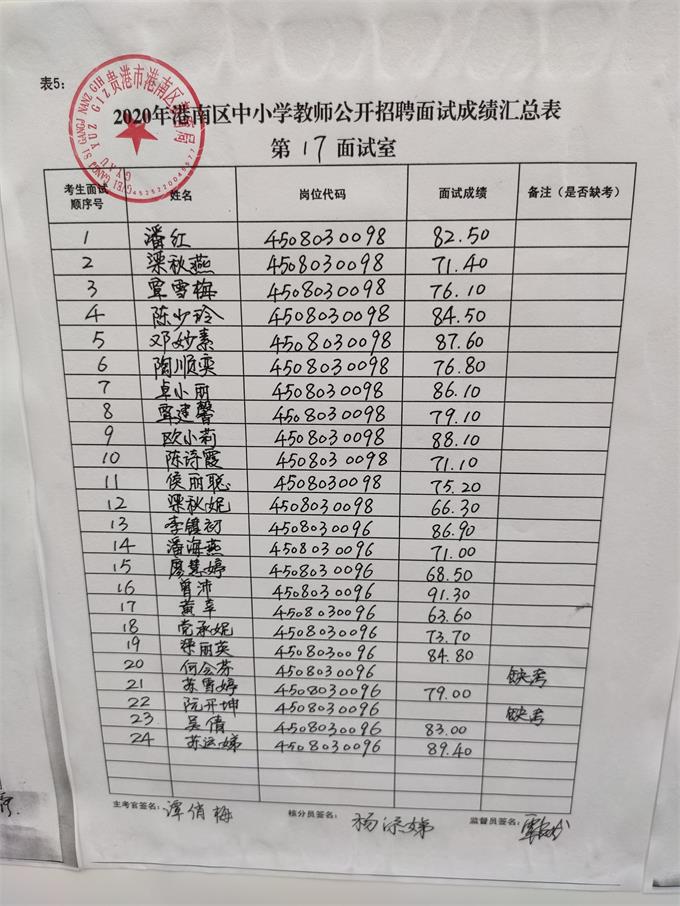 表5：
贵港市港南区教育局
2020年港南区中小学教师公开招聘面试成绩汇总表
第 17 面试室
考生面试顺序号 姓名 岗位代码 面试成绩 备注（是否缺考）
1 潘红 4508030098 82.50
2 梁秋燕 4508030098 71.40
3 覃雪梅 4508030098 76.10
4 陈少玲 4508030098 84.50
5 邓妙素 4508030098 87.60
6 陶顺奕 4508030098 76.80
7 卓小丽 4508030098 86.10
8 覃建馨 4508030098 79.10
9 欧小莉 4508030098 88.10
10 陈诗霞 4508030098 71.10
11 侯丽聪 4508030098 75.20
12 梁秋妮 4508030098 66.30
13 李镇初 4508030096 86.90
14 潘海燕 4508030096 71.00
15 廖慧婷 4508030096 68.50
16 曾沛 4508030096 91.30
17 黄草 4508030096 63.60
18 党承妮 4508030096 73.70
19 梁丽英 4508030096 84.80
20 何会芬 4508030096 缺考
21 苏雪婷 4508030096 79.00
22 阮开坤 4508030096 缺考
23 吴倩 4508030096 83.00
24 苏运娣 4508030096 89.40
主考官签名： 谭俏梅 核分员签名： 杨添娣 监督员签名：